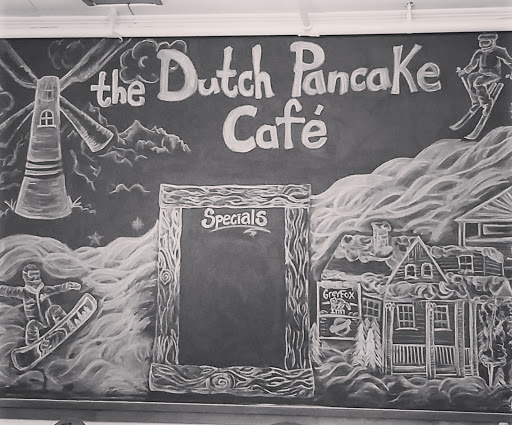 the Dutch Pancake
Café
Specials
Grey Fox
Inn